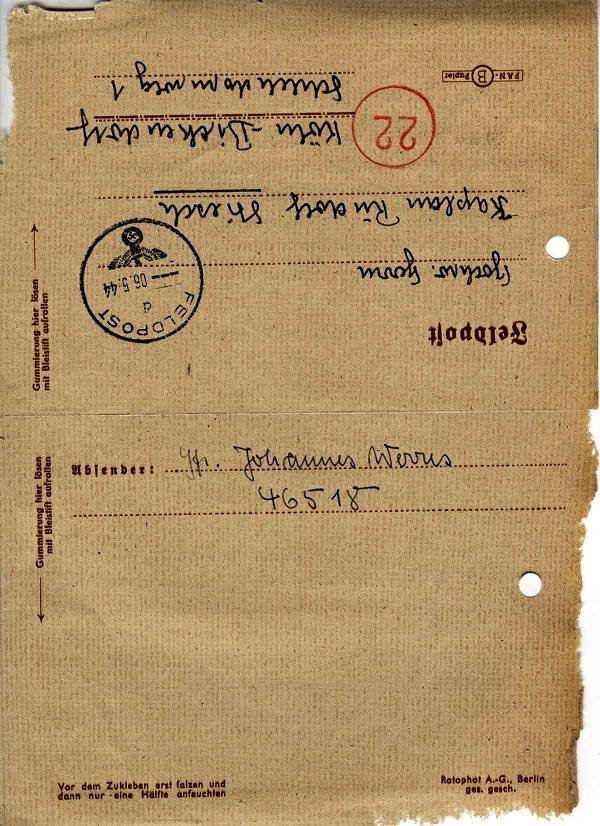 Feldpost
FELDPOST
d
06.5.44
Hochw. Herrn
Kaplan Rudolf
22
Köln-Bickendorf
Schlehdornweg 1
PAN B Papier
Gummierung hier lösen
mit Bleistift aufrollen
Absender: Gfr. Johannes Werres
46518
Gummierung hier lösen
mit Bleistift aufrollen
Vor dem Zukleben erst falzen und
dann nur eine Hälfte anfeuchten
Rotophot A.-G., Berlin
ges. gesch.